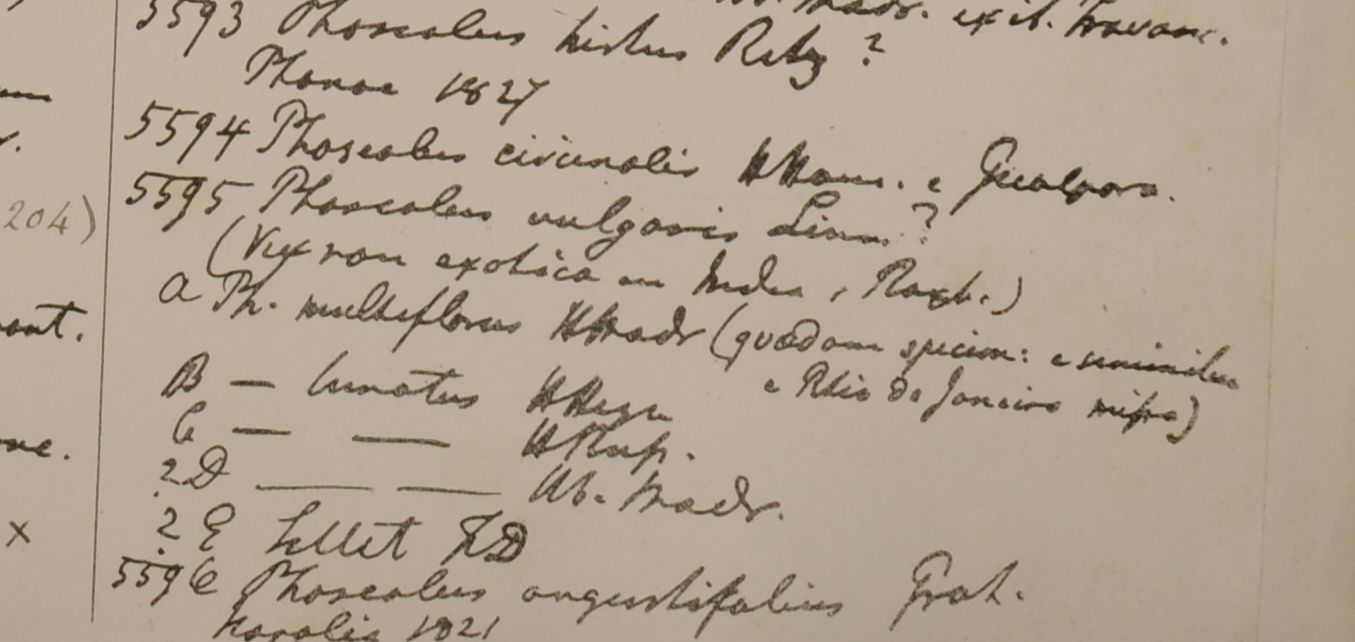 Hb. Madr. ex it. Travanc.
5593 Phaseolus hirtus Retz ?
Phanoe 1827
5594 Phaseolus circinalis HHam. e Gualpara.
204)
5595 Phaseolus vulgaris Linn. ?
(Vix non exotica in India, Roxb.)
a Ph. multiflorus HMadr (quaedam specim: e seminibus
ant.
e Rhio de Janeiro missa)
B — lunatus
C — — HRup.
2 D — — Hb. Madr.
x
2 E Lellet
5596 Phaseolus angustifolius Grah.
Napalia 1821